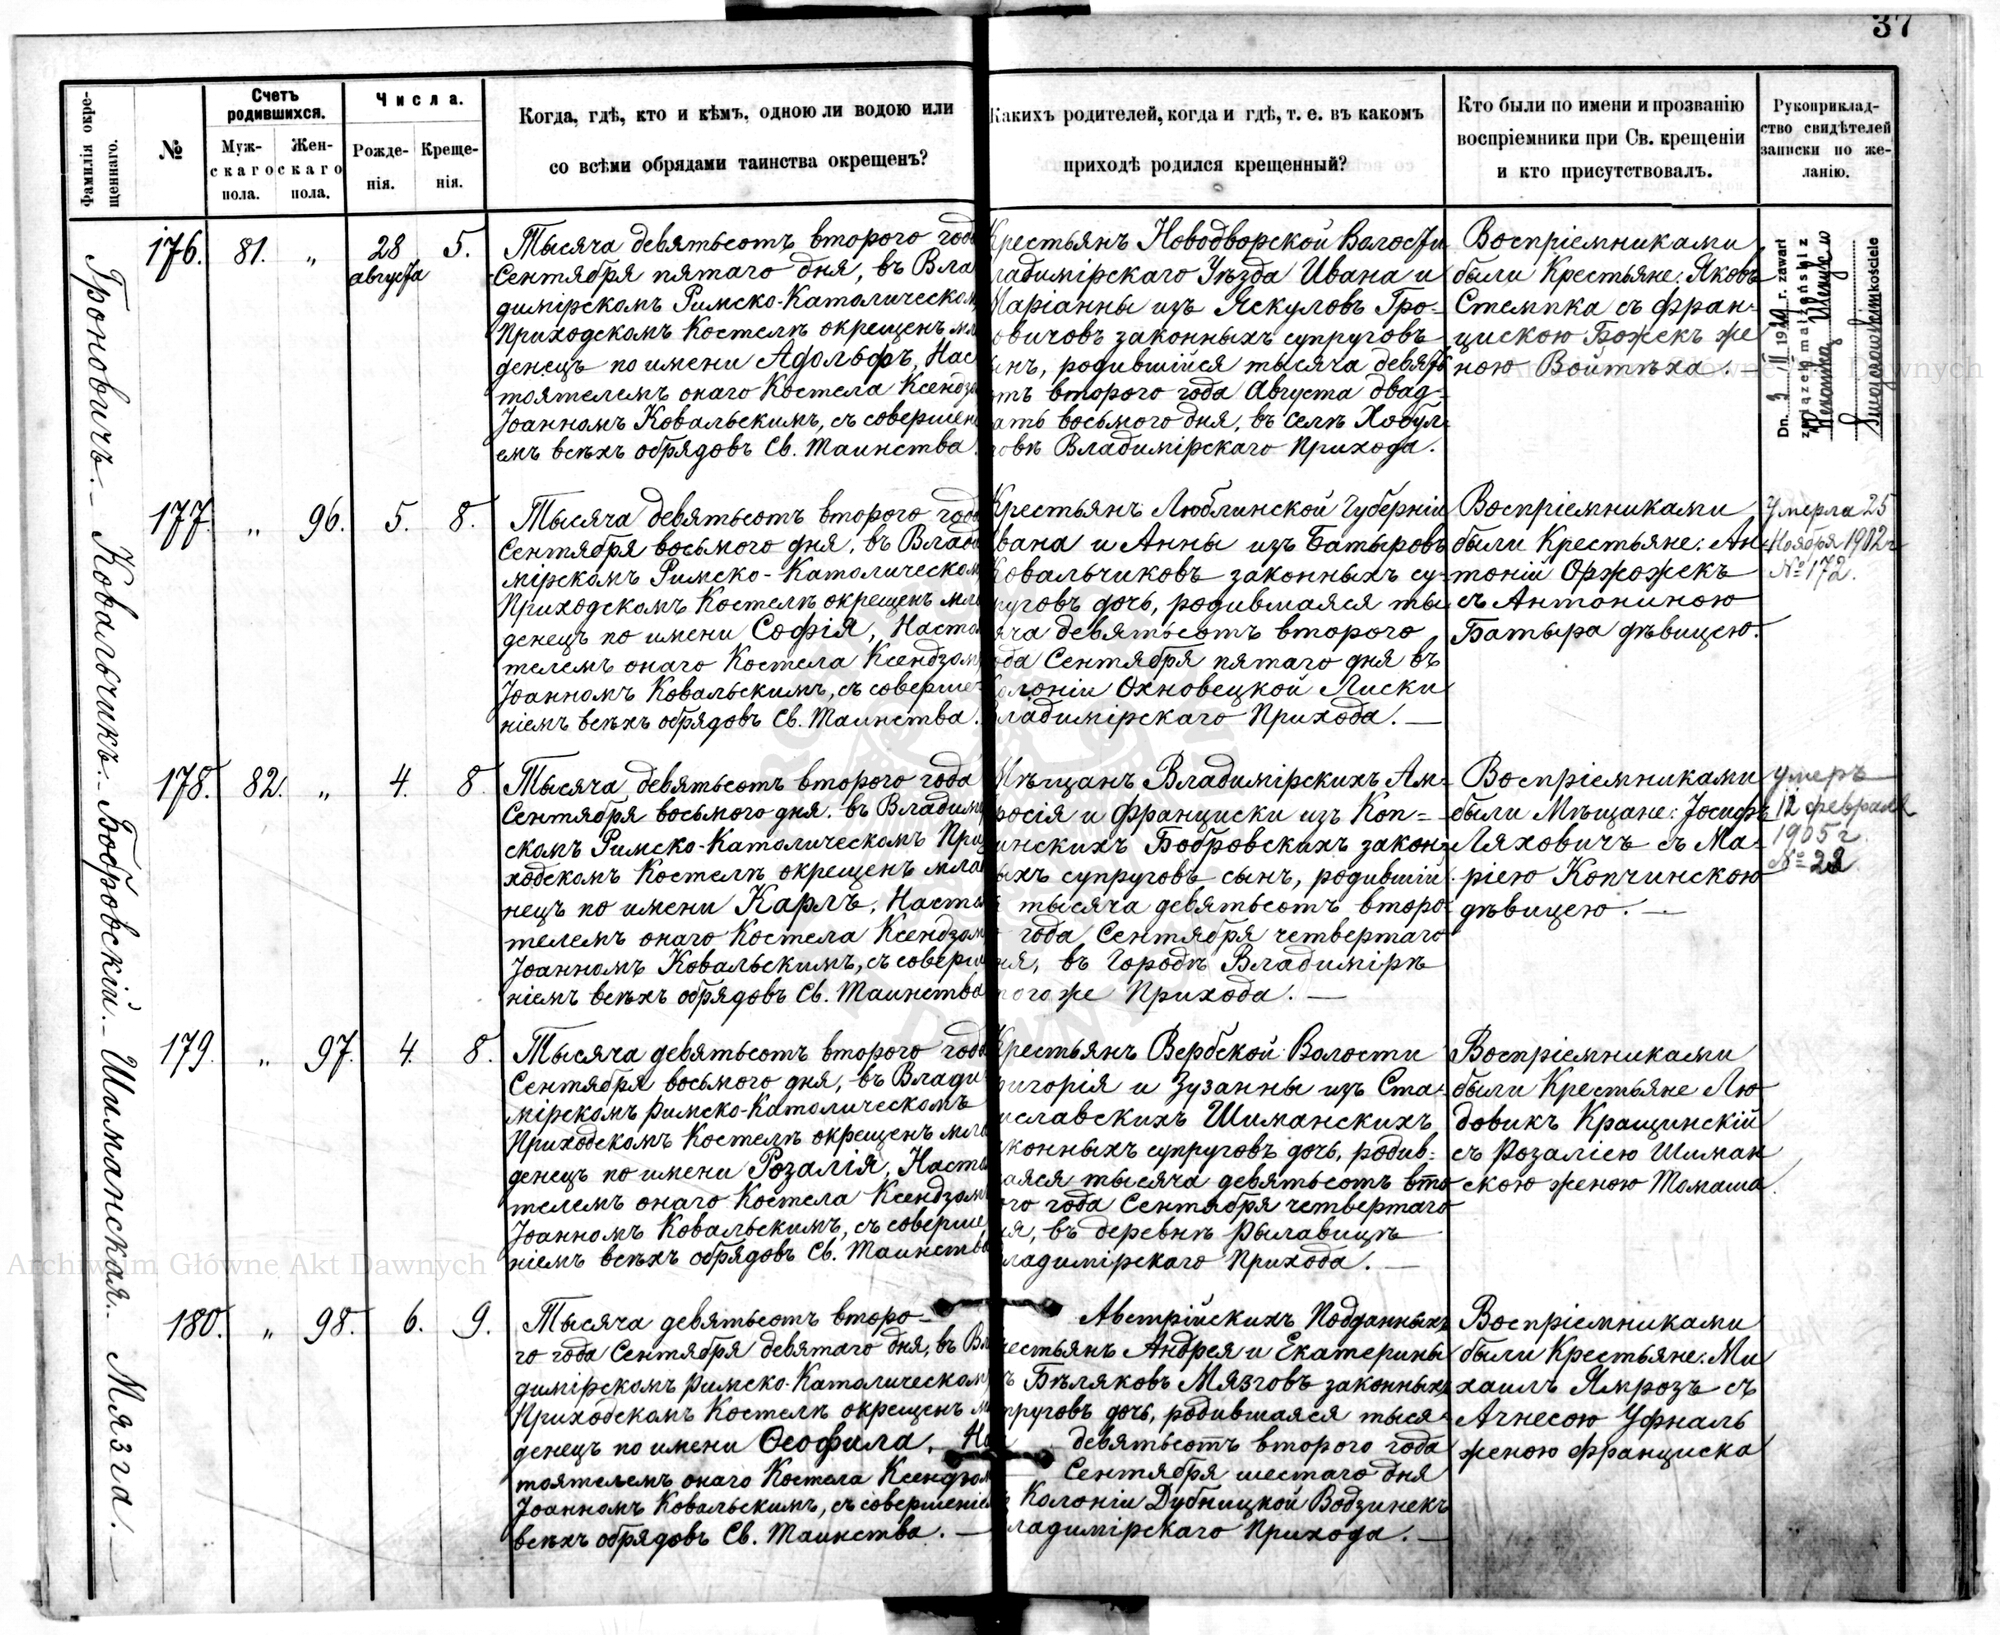 37
Фамилія окре-
щеннаго.
№
Счетъ
родившихся.
Муж-
скаго
пола.
Жен-
скаго
пола.
Числа.
Рожде-
нія.
Креще-
нія.
Когда, гдѣ, кто и кѣмъ, одною ли водою или
со всѣми обрядами таинства окрещенъ?
Какихъ родителей, когда и гдѣ, т. е. въ каком
приходѣ родился крещенный?
Кто были по имени и прозванію
воспріемники при Св. крещеніи
и кто присутствовалъ.
Рукоприклад-
ство свидѣтелей
записки по же-
ланію.
Гроновичъ.
176. 81. „ 28 августа 5.
Тысяча девятьсотъ второго года
Сентября пятаго дня, въ Вла
димірскомъ Римско-Католическом
Приходскомъ Костелѣ окрещенъ мла
денецъ по имени Адольфъ, Нас
тоятелемъ онаго Костела Ксендзо
Іоанномъ Ковальскимъ, съ совершені
емъ всѣхъ обрядовъ Св. Таинства.
Крестьянъ Новодворской Волости
ладимірскаго Уѣзда Ивана и
Маріанны изъ Яскуловъ Гро-
овичовъ законныхъ супруговъ
ынъ, родившійся тысяча девять
отъ второго года Августа двад-
ать восьмого дня, въ селѣ Хобул-
товѣ Владимірскаго Прихода.
Воспріемниками
были Крестьяне: Яковъ
Стемпка съ Фран-
цискою Божекъ же
ною Войтѣха. —
Dn. 3 II 1930 r. zawarł
związek małżeński z
kościele
Ковальчикъ.
177. „ 96. 5. 8.
Тысяча девятьсотъ второго года
Сентября восьмого дня, въ Влади
мірскомъ Римско-Католическом
Приходскомъ Костелѣ окрещенъ мла
денецъ по имени Софія, Насто
телемъ онаго Костела Ксендзом
Іоанномъ Ковальскимъ, съ соверше-
ніемъ всѣхъ обрядовъ Св. Таинства.
Крестьянъ Люблинской Губерніи
Ивана и Анны изъ Батыровъ
Ковальчиковъ законныхъ су-
руговъ дочь, родившаяся ты
яча девятьсотъ второго
ода Сентября пятаго дня въ
Колоніи Охновецкой Лиски
Владимірскаго Прихода. —
Воспріемниками
были Крестьяне: Ан-
тоній Оржожекъ
съ Антониною
Батыра дѣвицею.
Умерла 25
Ноября 1902 г
№ 172.
Бобровскій.
178. 82. „ 4. 8.
Тысяча девятьсотъ второго года
Сентября восьмого дня. въ Владимі
скомъ Римско-Католическомъ При
ходскомъ Костелѣ окрещенъ млад
нецъ по имени Карлъ, Насто
телемъ онаго Костела Ксендзом
Іоанномъ Ковальскимъ, съ соверше
ніемъ всѣхъ обрядовъ Св. Таинства
Мѣщанъ Владимірскихъ Ам-
росія и Франциски изъ Коп-
инскихъ Бобровскихъ закон-
ыхъ супруговъ сынъ, родившій
тысяча девятьсотъ второ-
года Сентября четвертаго
ня, въ Городѣ Владимірѣ
того же Прихода. —
Воспріемниками
были Мѣщане: Іосифъ
Ляховичъ съ Ма-
ріею Копчинскою
дѣвицею. —
Умеръ
12 февраля
1905 г.
№ 22
Шиманская.
179. „ 97. 4. 8.
Тысяча девятьсотъ второго года
Сентября восьмого дня, въ Влади-
мірскомъ Римско-Католическомъ
Приходскомъ Костелѣ окрещенъ мла
денецъ по имени Розалія, Насто
телемъ онаго Костела Ксендзом
Іоанномъ Ковальскимъ, съ соверше
ніемъ всѣхъ обрядовъ Св. Таинства
Крестьянъ Вербской Волости
ригорія и Зузанны изъ Ста-
иславскихъ Шиманскихъ
конныхъ супруговъ дочь, родив-
аяся тысяча девятьсотъ вто
ого года Сентября четвертаго
ня, въ деревнѣ Рылавицѣ
ладимірскаго Прихода. —
Воспріемниками
были Крестьяне Лю
довикъ Кращинскій
съ Розаліею Шиман
скою женою Томаша.
Мязга. —
180. „ 98. 6. 9.
Тысяча девятьсотъ второ-
го года Сентября девятаго дня, въ Вла
димірскомъ Римско-Католическом
Приходскомъ Костелѣ окрещенъ м
денецъ по имени Ѳеофила, На
тоятелемъ онаго Костела Ксендзом
Іоанномъ Ковальскимъ, съ совершеніе
всѣхъ обрядовъ Св. Таинства. —
Австрійскихъ Подданныхъ
рестьянъ Андрея и Екатерины
ъ Бѣляковъ Мязговъ законныхъ
пруговъ дочь, родившаяся тыся-
девятьсотъ второго года
Сентября шестаго дня
Колоніи Дубницкой Водзинекъ
ладимірскаго Прихода. —
Воспріемниками
были Крестьяне: Ми
хаилъ Ямрозъ съ
Агнесою Уфналь
женою Франциска
Archiwum Główne Akt Dawnych